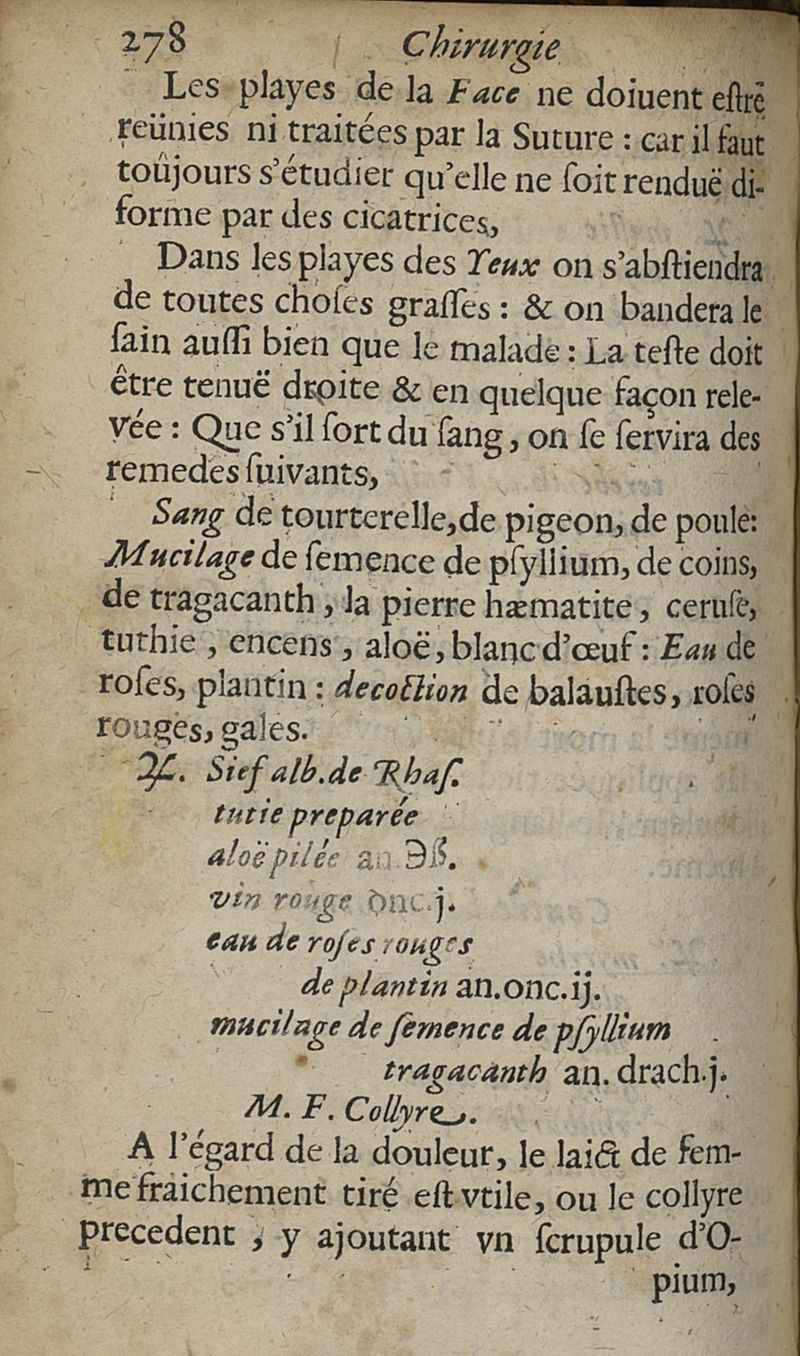 278 Chirurgie
Les playes de la Face ne doiuent eſtre
reünies ni traitées par la Suture : car il faut
toûjours s'étudier qu'elle ne ſoit renduë di-
forme par des cicatrices,
Dans les playes des Yeux on s'abſtiendra
de toutes choſes graſſes : & on bandera le
ſain auſſi bien que le malade : La teſte doit
être tenuë droite & en quelque façon rele-
vée : Que s'il ſort du ſang, on ſe ſervira des
remedes ſuivants,
Sang de tourterelle, de pigeon, de poule:
Mucilage de ſemence de pſyllium, de coins,
de tragacanth, la pierre hæmatite, ceruſe,
tuthie, encens, aloë, blanc d'œuf : Eau de
roſes, plantin : decoction de balauſtes, roſes
rouges, gales.
♃. Sief alb. de Rhaſ.
tutie preparée
aloë pilée an ℈ß.
vin rouge onc. j.
eau de roſes rouges
de plantin an. onc. ij.
mucilage de ſemence de pſyllium
tragacanth an. drach. j.
M. F. Collyre.
A l'égard de la douleur, le laict de fem-
me fraichement tiré eſt vtile, ou le collyre
precedent, y ajoutant vn ſcrupule d'O-
pium,